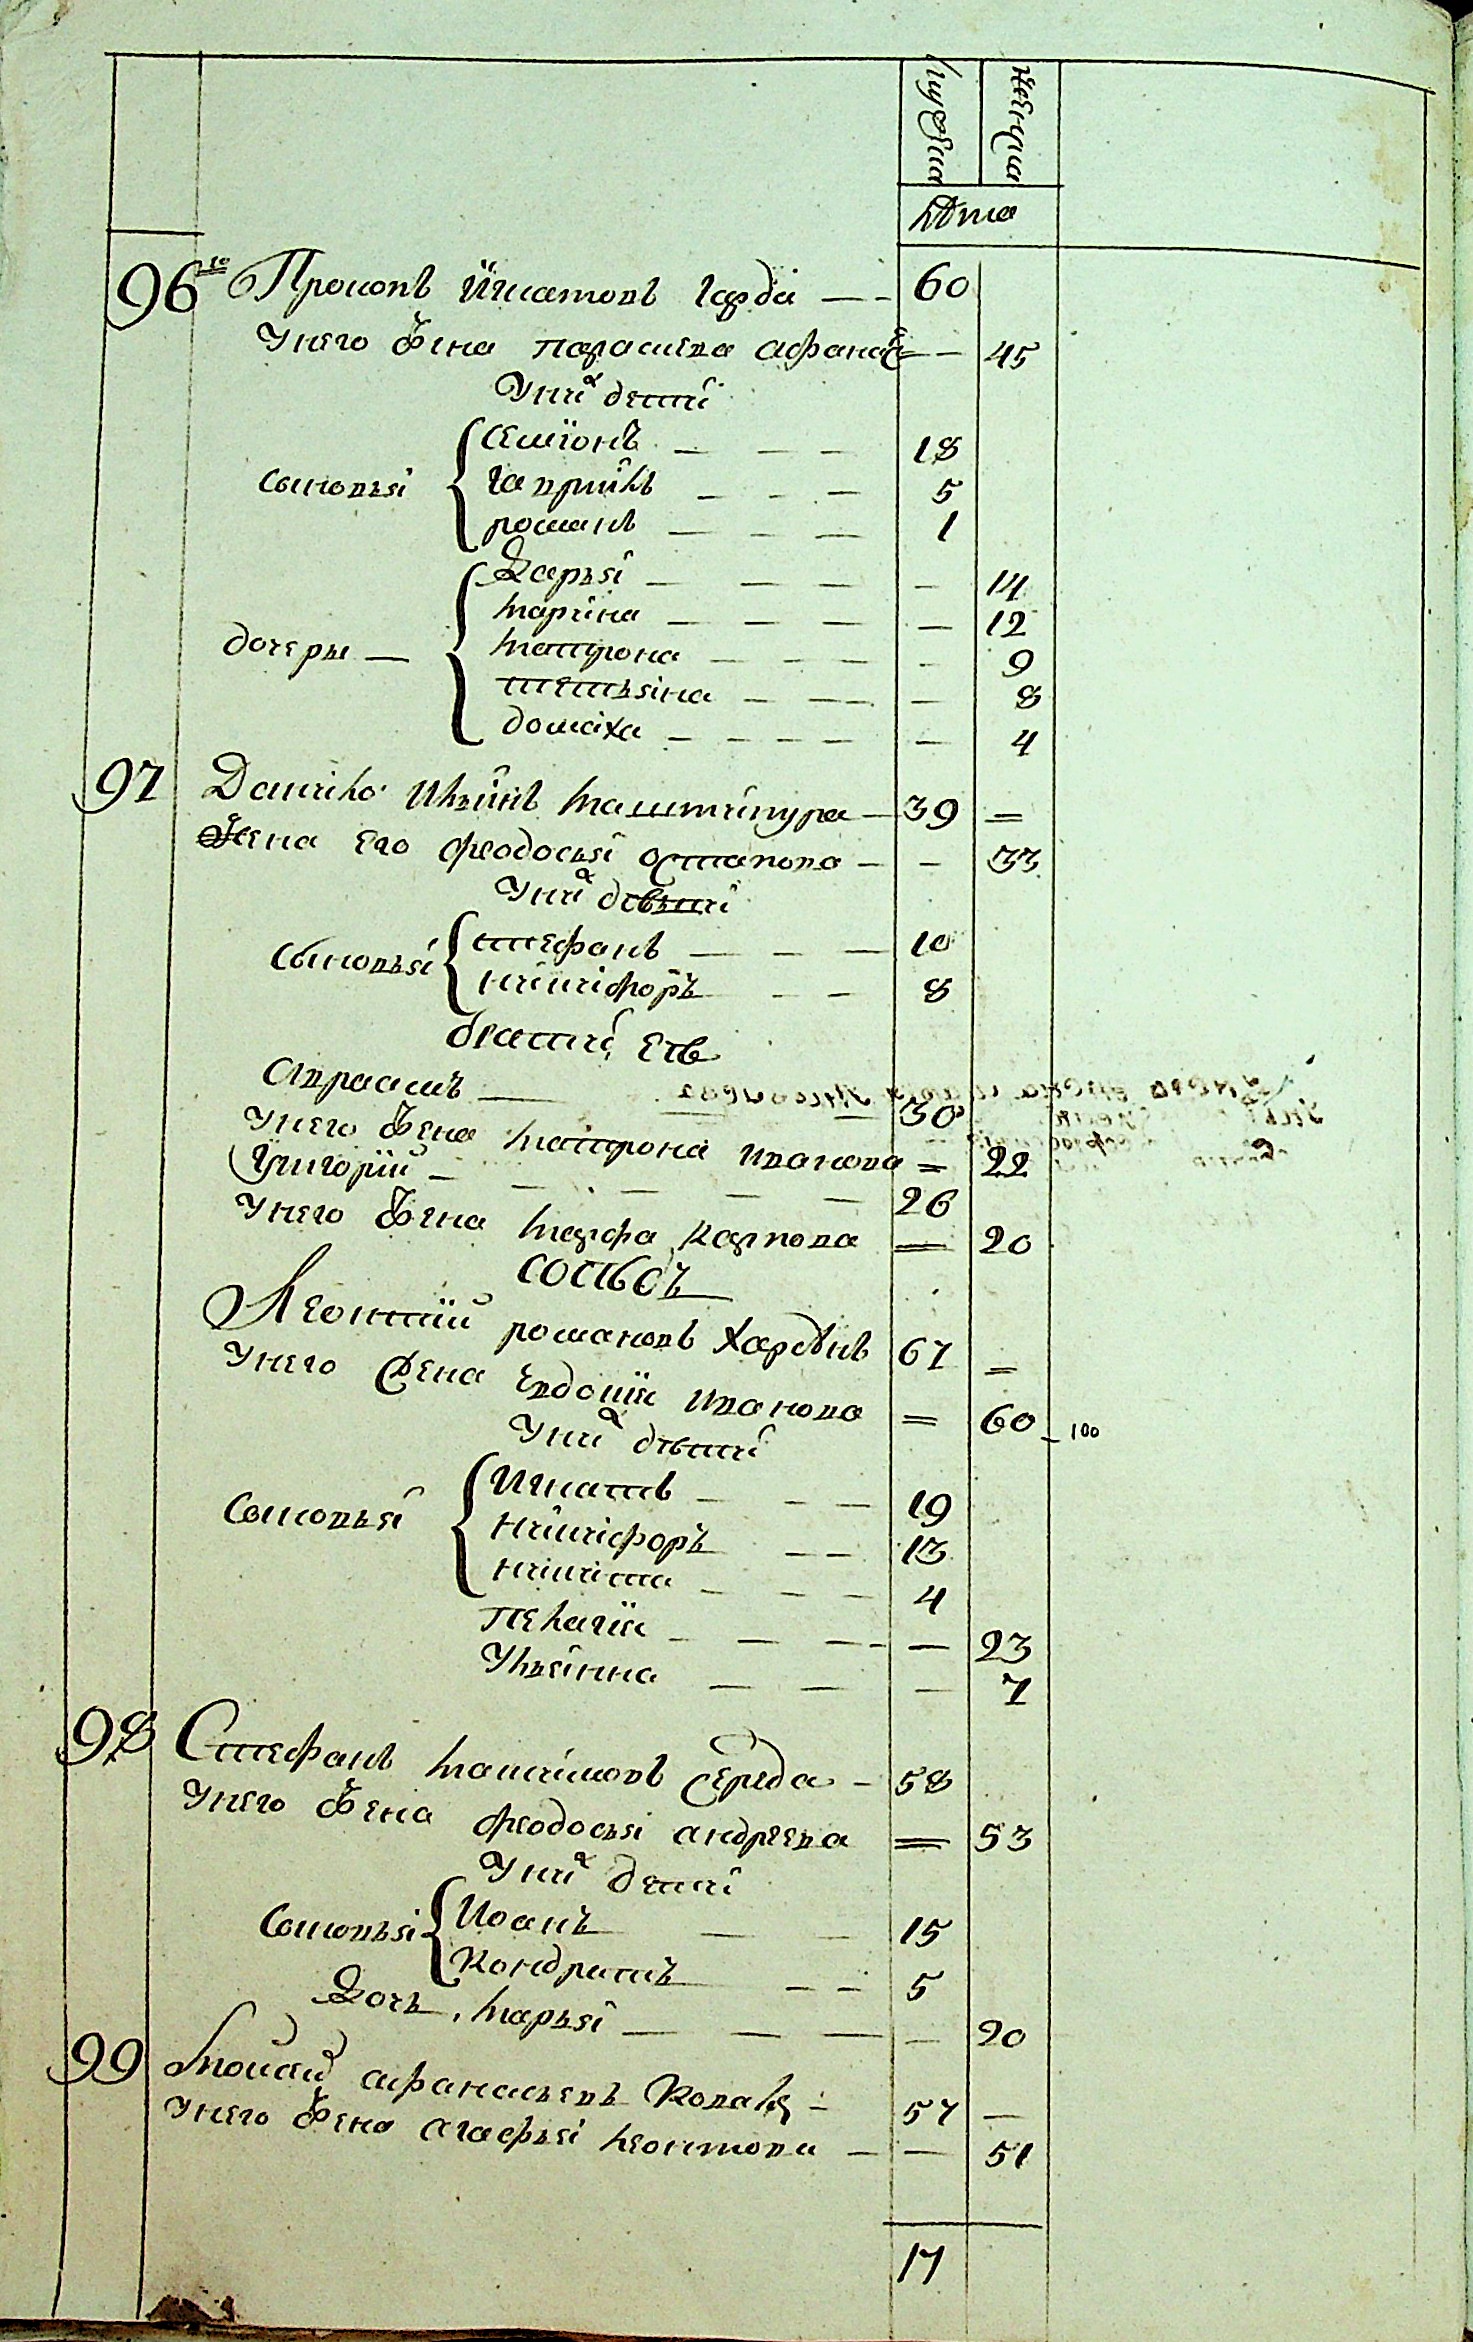 мужеска женска
лѣта
96го Прокопъ Игнатовъ Гарді — — 60
Унего жена параскева афанас — — 45
Уних дети
сыновья
семіонъ — — — 18
гаврило — — — 5
романъ — — — 1
дочеры —
Дарья — — — — 14
марина — — — — 12
матрона — — — — 9
тетьяна — — — — 8
домаха — — — — 4
97 Данило Ильинъ 39 =
Жена его феодосья остапова — — 33
Уних дѣти
Сыновья
стефанъ — — — 10
никифоръ — — 8
братья его
Авраамъ — 30
Унего жена матрона иванова = 22
Григорий — — — — 26
Унего жена марфа карпова = 20
сосѣдъ
Леонтий романовъ 67 =
Унего жена Евдокия иванова = 60 — 100
Уних дѣти
Сыновья
Игнатъ — — — 19
никифоръ — — 13
никита — — — 4
пелагия — — — — 23
Ульянна — — — 7
98 Стефанъ максимовъ середа — 58
Унего жена феодосья андреева = 53
Уних дети
Сыновья
Иоанъ — — 15
Кондратъ — — 5
Дочь марья — — — — 20
99 Моисей афанасьевъ Коваль — 57 —
Унего жена агафья леонтова — — 51
17